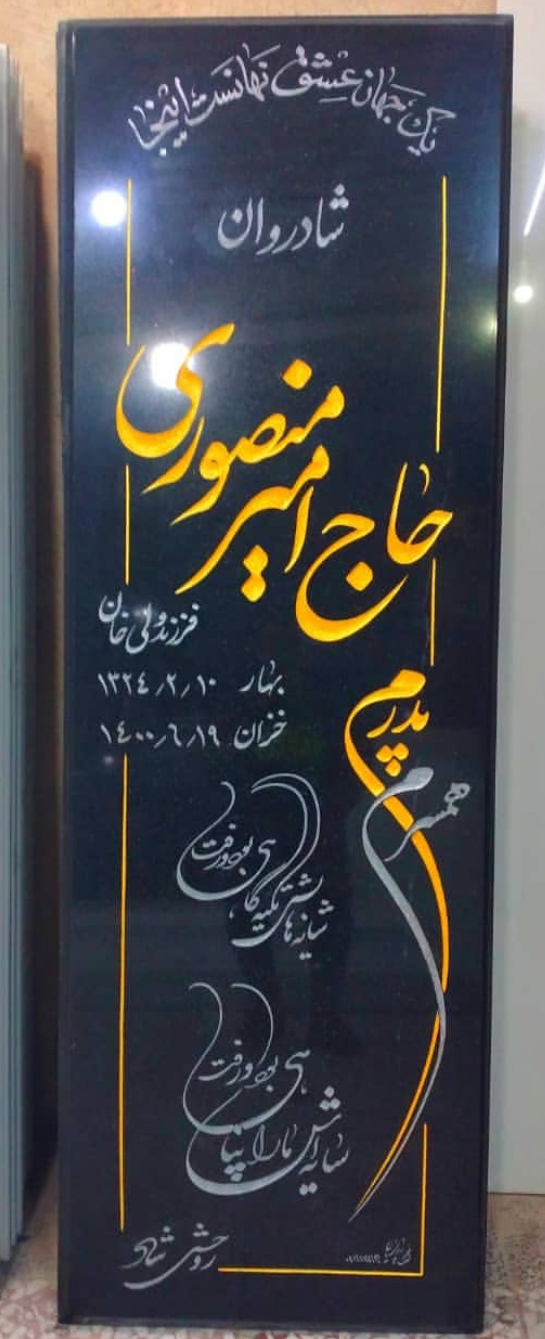 یک جهان عشق نهانست اینجا
شادروان
حاج امیر منصوری
فرزند ولی خان
بهار ۱۳۲۴/۲/۱۰
خزان ۱۴۰۰/۶/۱۹
پدرم
همسرم
شانه هایش تکیه گاهی بود و رفت
سایه اش ما را پناهی بود و رفت
روحش شاد